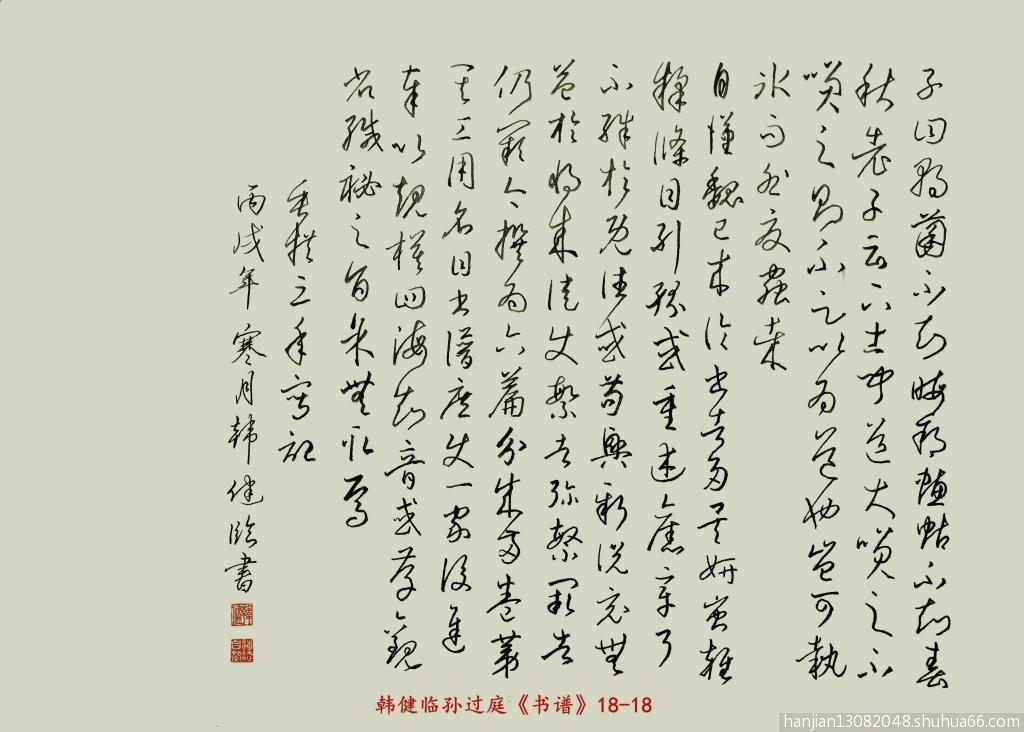 子曰朝菌不知晦朔蟪蛄不知春
秋老子云下士聞道大笑之不
笑之則不足以為道也豈可執
冰而咎夏蟲哉
自漢魏已來論書者多矣妍蚩雜
糅條目糾紛或重述舊章了
不殊於既往或苟興新說竟無
益於將來徒使繁者彌繁闕者
仍闕今撰為六篇分成兩卷第
其工用名曰書譜庶使一家後進
奉以規模四海知音或存觀
省緘秘之旨余無取焉
垂拱三年寫記
丙戌年寒月韩健臨書
韩健临孙过庭《书谱》18-18
hanjian13082048.shuhua66.com